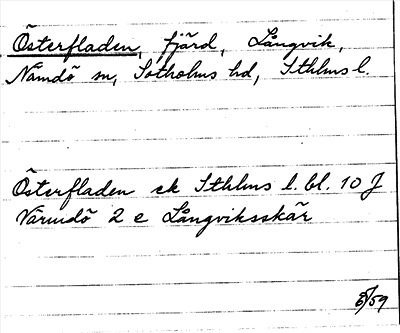 Österfladen, fjärd, Långvik,
Nämdö sn, Sotholms hd, Sthlms l.
Österfladen ek Sthlms l. bl. 10 J
Värmdö 2 e Långviksskär
/59